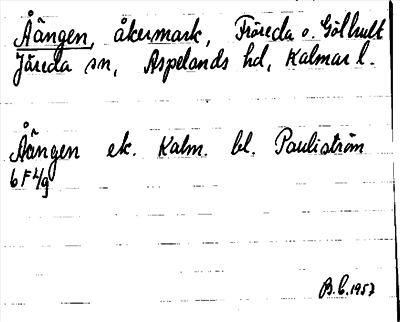 Åängen, åkermark, Fröreda o. Gölhult
Järeda sn, Aspelands hd, Kalmar l.
Åängen ek. Kalm. bl. Pauliström
6 F 4g
B.C. 1957